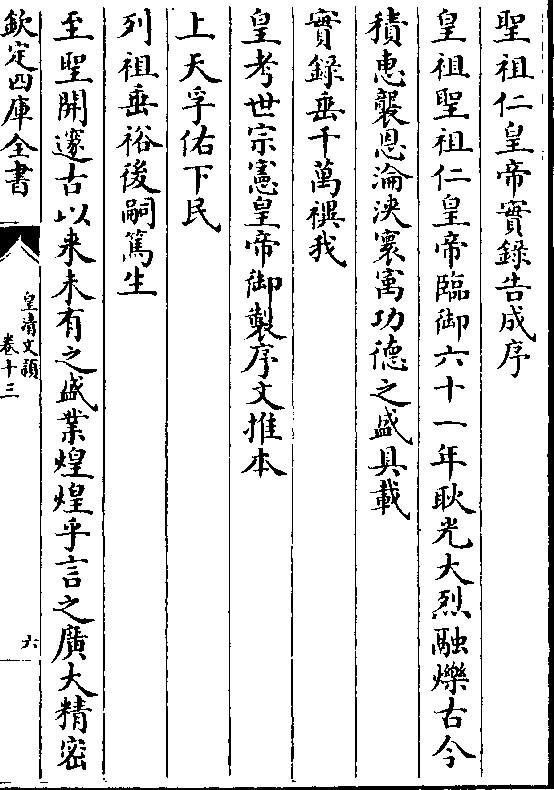 聖祖仁皇帝實錄告成序
皇祖聖祖仁皇帝臨御六十一年耿光大烈融爍古今
積惠襲恩淪浹寰㝢功德之盛具載
實錄垂千萬禩我
皇考世宗憲皇帝御製序文推本
上天孚佑下民
列祖垂裕後嗣篤生
至聖開邃古以来未有之盛業煌煌乎言之廣大精密
欽定四庫全書
皇清文頴
卷十三
六